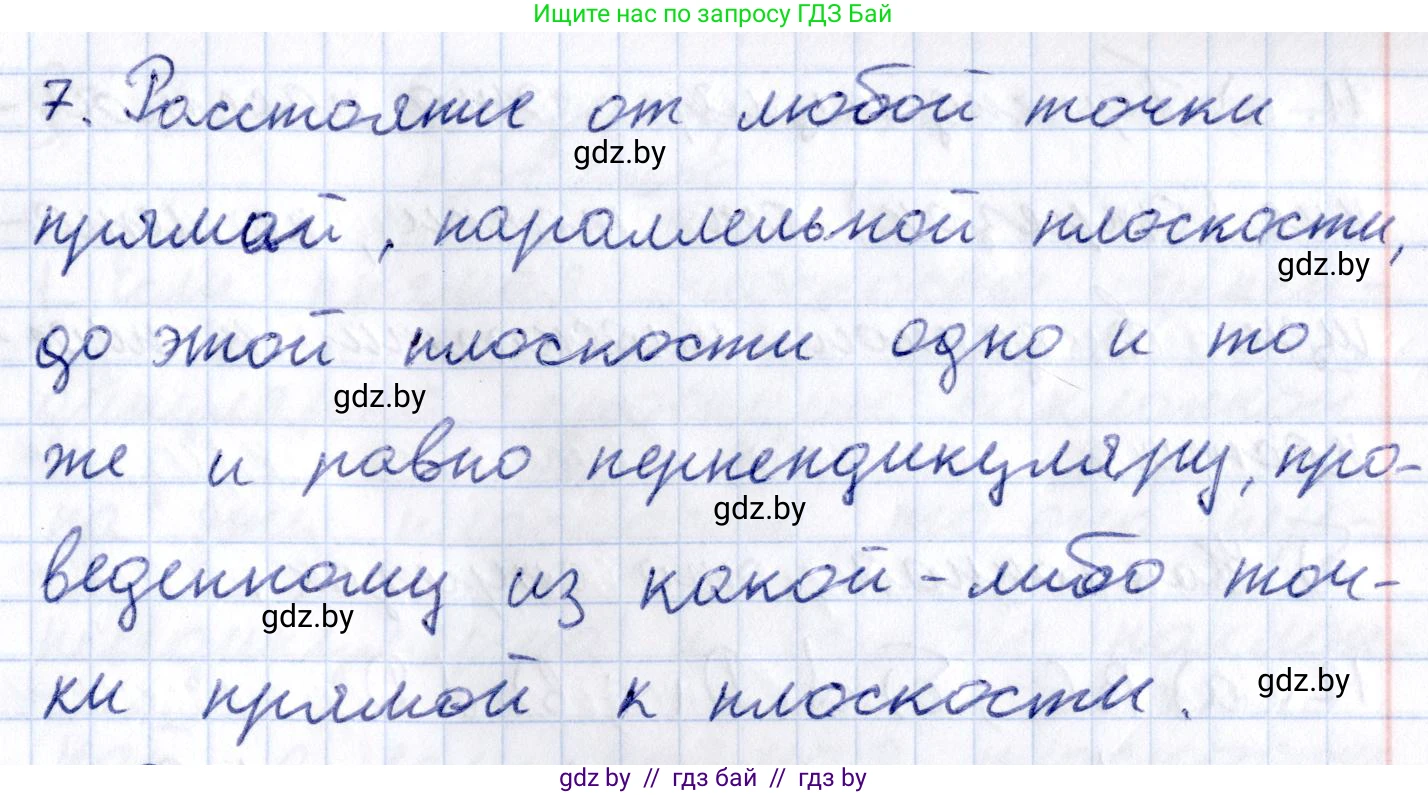 Ищите нас по запросу ГДЗ Бай
7. Расстояние от любой точки
gdz.by
прямой, параллельной плоскости,
gdz.by
до этой плоскости одно и то
gdz.by
же и равно перпендикуляру, про-
gdz.by
веденному из какой-либо точ-
gdz.by
ки прямой к плоскости.
gdz.by
gdz by // гдз бай // гдз by